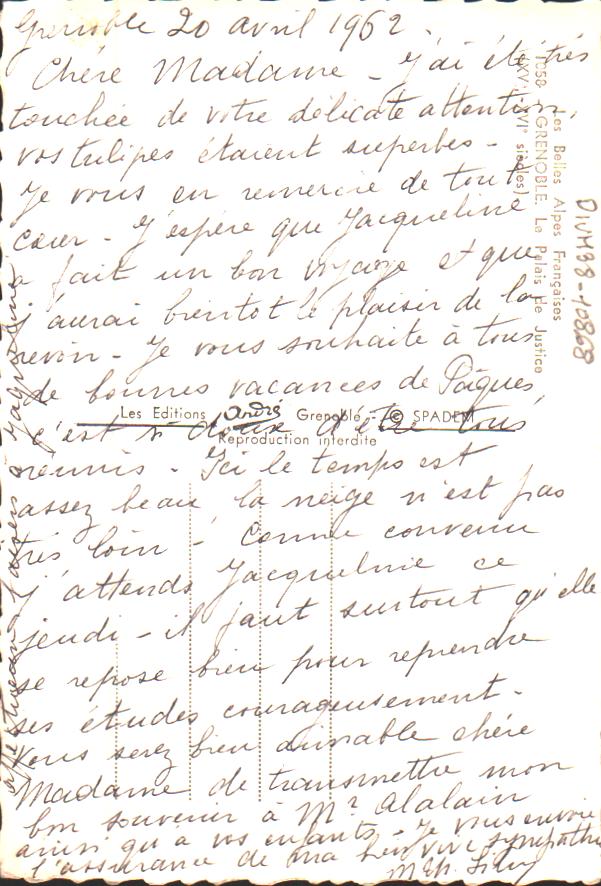 Grenoble 20 avril 1962.
Chère Madame - J'ai été très
touchée de votre délicate attention,
vos tulipes étaient superbes -
Je vous en remercie de tout
cœur - J'espère que Jacqueline
a fait un bon voyage et que
j'aurai bientôt le plaisir de la
revoir - Je vous souhaite à tous
de bonnes vacances de Pâques,
c'est si doux d'être tous
réunis - Ici le temps est
assez beau, la neige n'est pas
très loin - Comme convenu
j'attends Jacqueline ce
jeudi - il faut surtout qu'elle
se repose bien pour reprendre
ses études courageusement -
Vous serez bien aimable chère
Madame de transmettre mon
bon souvenir à Mr Alalain
ainsi qu'à vos enfants - Je vous envoie
l'assurance de ma bien vive sympathie
Les Editions André Grenoble - © SPADEM
Reproduction interdite
Les Belles Alpes Françaises
1058 - GRENOBLE. Le Palais de Justice
(XVe-XVIe siècles)
DIVM38-10868